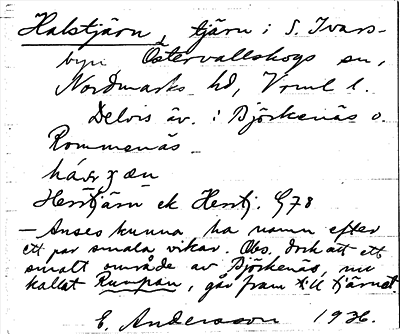 Halstjärn, tjärn i S. Ivars-
byn, Östervallskogs sn,
Nordmarks hd, Vrml l.
Delvis äv. i Björkenäs o.
Rommenäs
Herrtjärn ek Herrtj. G78
— Anses kunna ha namn efter
ett par smala vikar. Obs. dock att ett
smalt område av Björkenäs, nu
kallat Rumpan, går fram till tjärnet.
E. Andersson 1936.